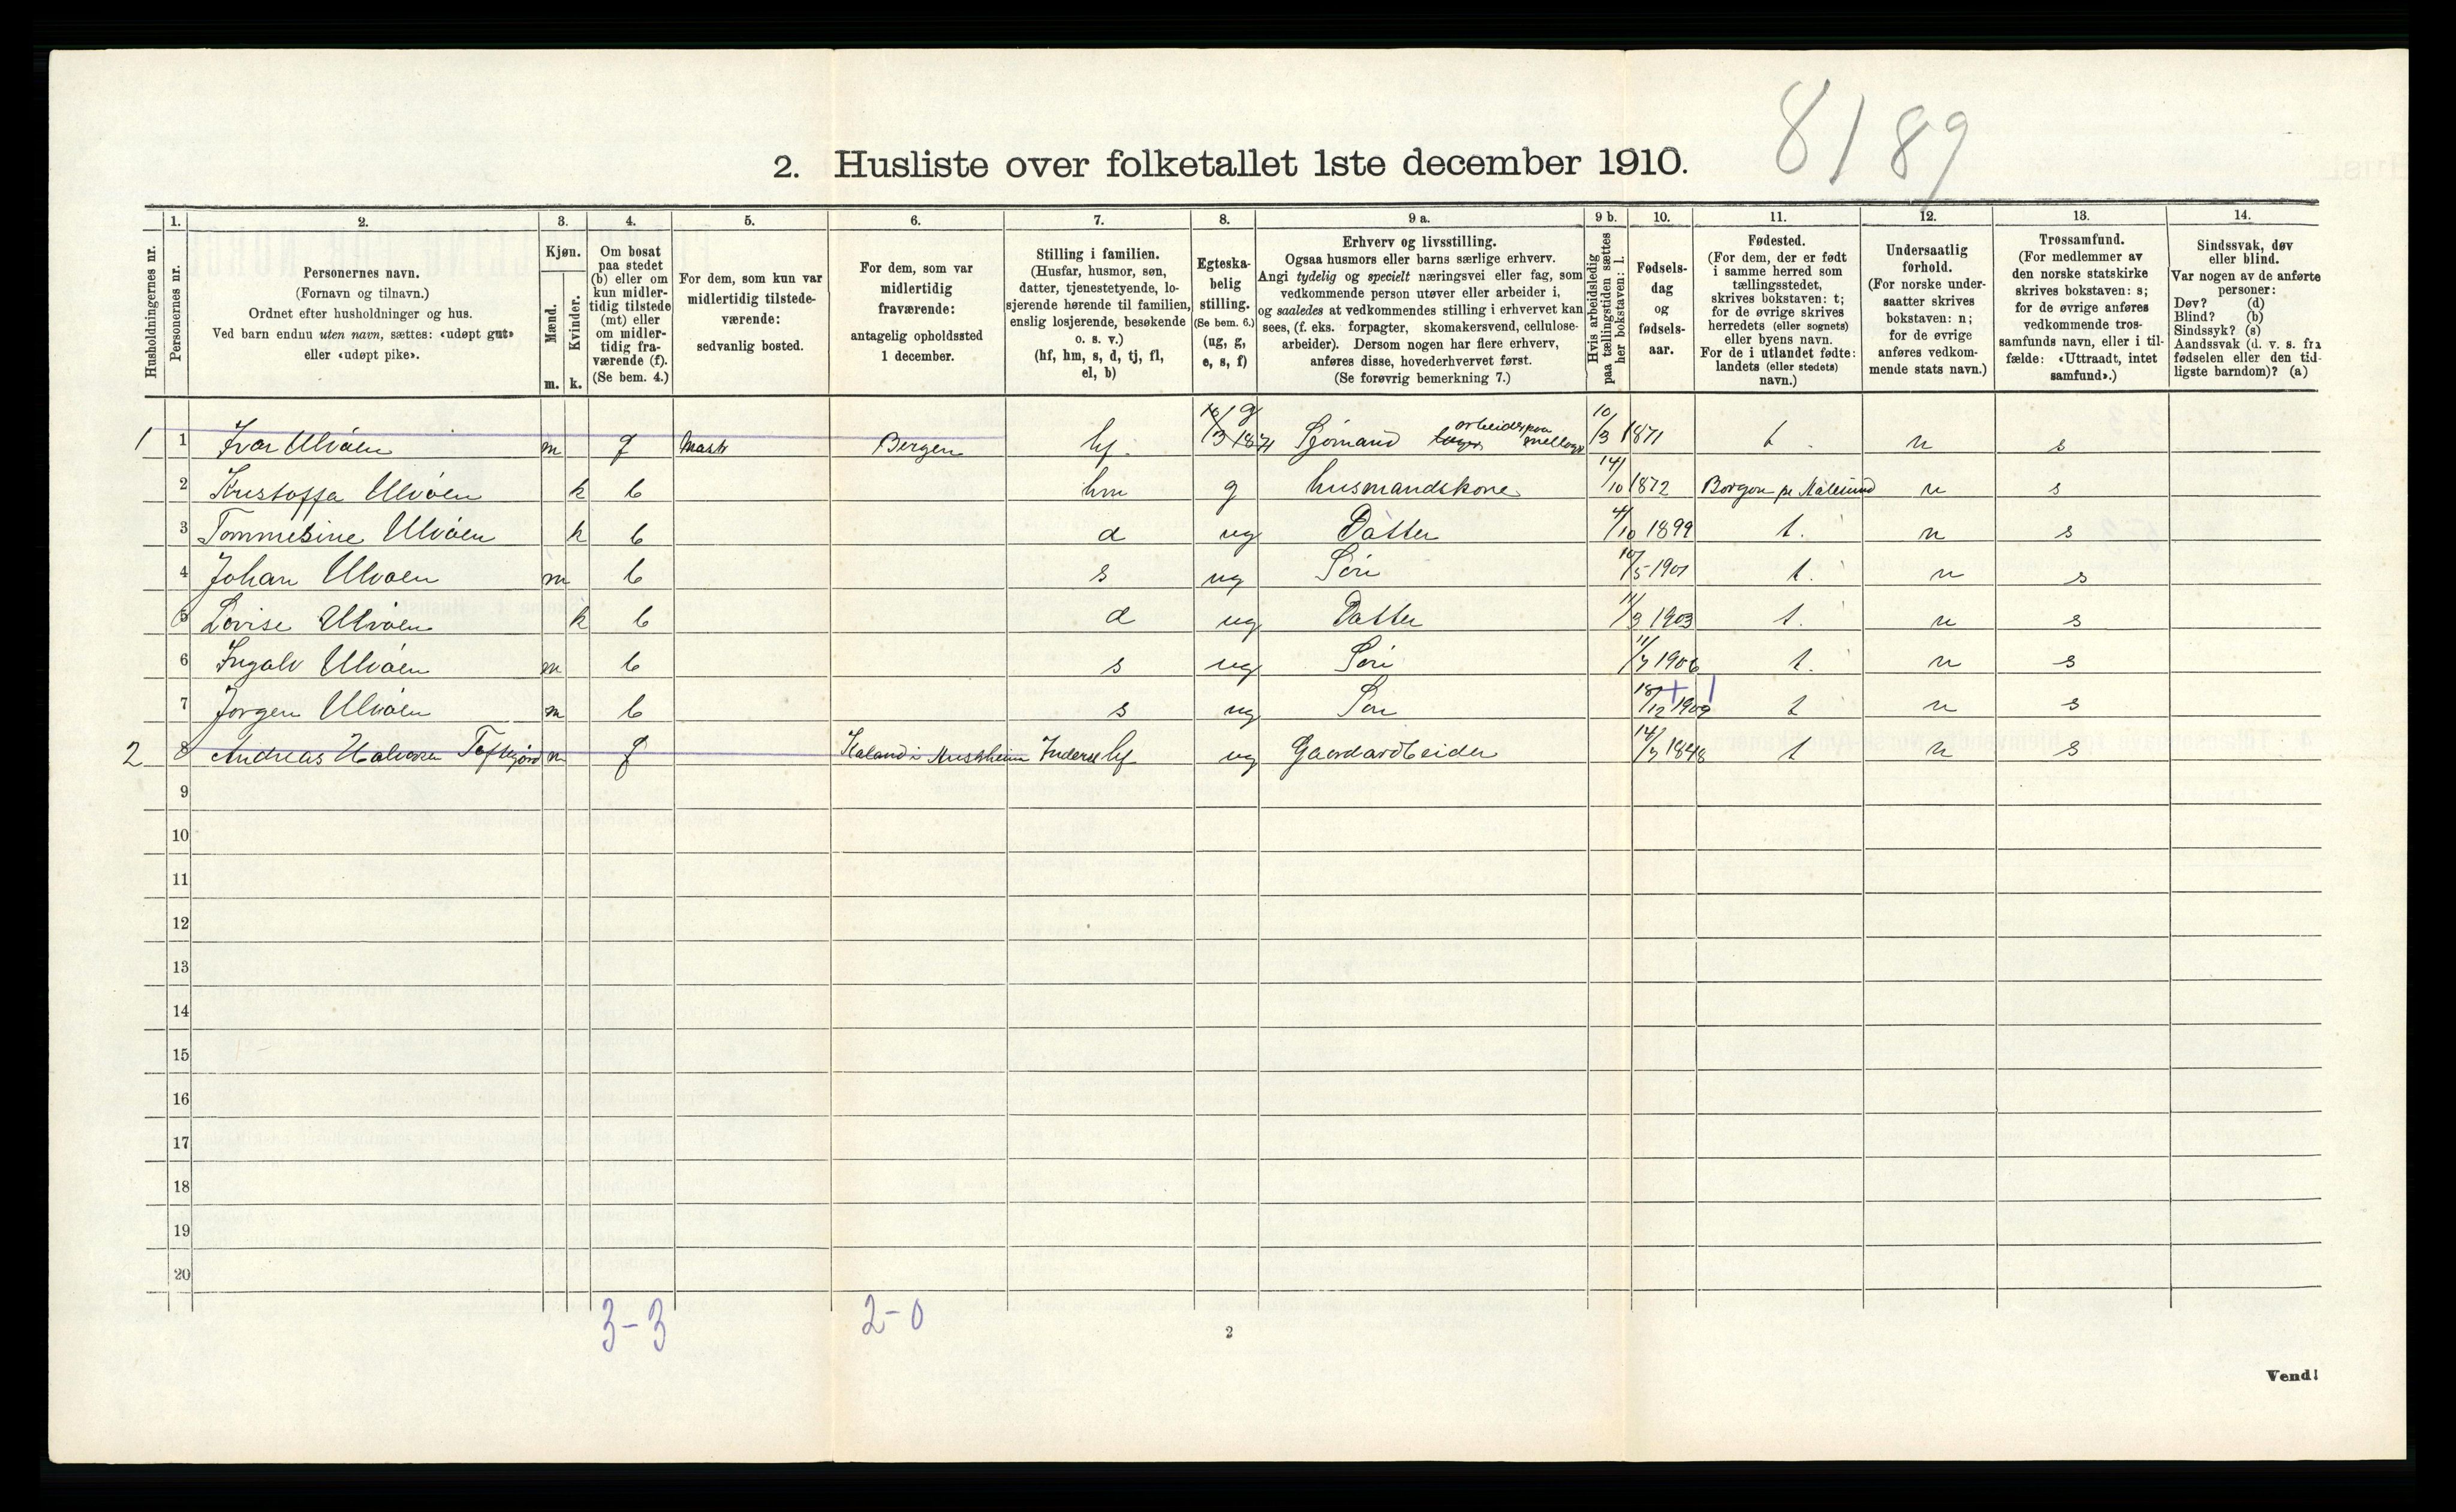 8189
2. Husliste over folketallet 1ste december 1910.
Husholdningernes nr.
1.
Personernes nr.
2.
Personernes navn.
(Fornavn og tilnavn.)
Ordnet efter husholdninger og hus.
Ved barn endnu uten navn, sættes: «udøpt gut»
eller «udøpt pike».
3.
Kjøn.
Mænd.
Kvinder.
m. k.
4.
Om bosat
paa stedet
(b) eller om
kun midler-
tidig tilstede
(mt) eller
om midler-
tidig fra-
værende (f).
(Se bem. 4.)
5.
For dem, som kun var
midlertidig tilstede-
værende:
sedvanlig bosted.
6.
For dem, som var
midlertidig
fraværende:
antagelig opholdssted
1 december.
7.
Stilling i familien.
(Husfar, husmor, søn,
datter, tjenestetyende, lo-
sjerende hørende til familien,
enslig losjerende, besøkende
o. s. v.)
(hf, hm, s, d, tj, fl,
el, b)
8.
Egteska-
belig
stilling.
(Se bem. 6.)
(ug, g,
e, s, f)
9 a.
Erhverv og livsstilling.
Ogsaa husmors eller barns særlige erhverv.
Angi tydelig og specielt næringsvei eller fag, som
vedkommende person utøver eller arbeider i,
og saaledes at vedkommendes stilling i erhvervet kan
sees, (f. eks. forpagter, skomakersvend, cellulose-
arbeider). Dersom nogen har flere erhverv,
anføres disse, hovederhvervet først.
(Se forøvrig bemerkning 7.)
9 b.
Hvis arbeidsledig
paa tællingstiden sættes
her bokstaven: l.
10.
Fødsels-
dag
og
fødsels-
aar.
11.
Fødested.
(For dem, der er født
i samme herred som
tællingsstedet,
skrives bokstaven: t;
for de øvrige skrives
herredets (eller sognets)
eller byens navn.
For de i utlandet fødte:
landets (eller stedets)
navn.)
12.
Undersaatlig
forhold.
(For norske under-
saatter skrives
bokstaven: n;
for de øvrige
anføres vedkom-
mende stats navn.)
13.
Trossamfund.
(For medlemmer av
den norske statskirke
skrives bokstaven: s;
for de øvrige anføres
vedkommende tros-
samfunds navn, eller i til-
fælde: «Uttraadt, intet
samfund».)
14.
Sindssvak, døv
eller blind.
Var nogen av de anførte
personer:
Døv? (d)
Blind? (b)
Sindssyk? (s)
Aandssvak (d. v. s. fra
fødselen eller den tid-
ligste barndom)? (a)
1 1 Ivar Ulvöen m f Bergen hf. g 10/3 1871 Sjömand arbeider paa 10/3 1871 t. n s
2 Kristoffa Ulvöen k b hm g husmandskone 14/10 1872 Borgon pr Aalesund n s
3 Tommesine Ulvöen k b d ug Datter 4/10 1899 t. n s
4 Johan Ulvöen m b s ug Sön 10/5 1901 t. n s
5 Lovise Ulvöen k b d ug Datter 11/3 1903 t. n s
6 Ingalv Ulvöen m b s ug Sön 11/7 1906 t. n s
7 Jorgen Ulvöen m b s ug Sön 18/12 1909 t n s
2 8 Andreas Halvorsen m f hf ug Gaardarbeider 14/7 1848 t n s
9
10
11
12
13
14
15
16
17
18
19
20
3-3 2-0
2
Vend!